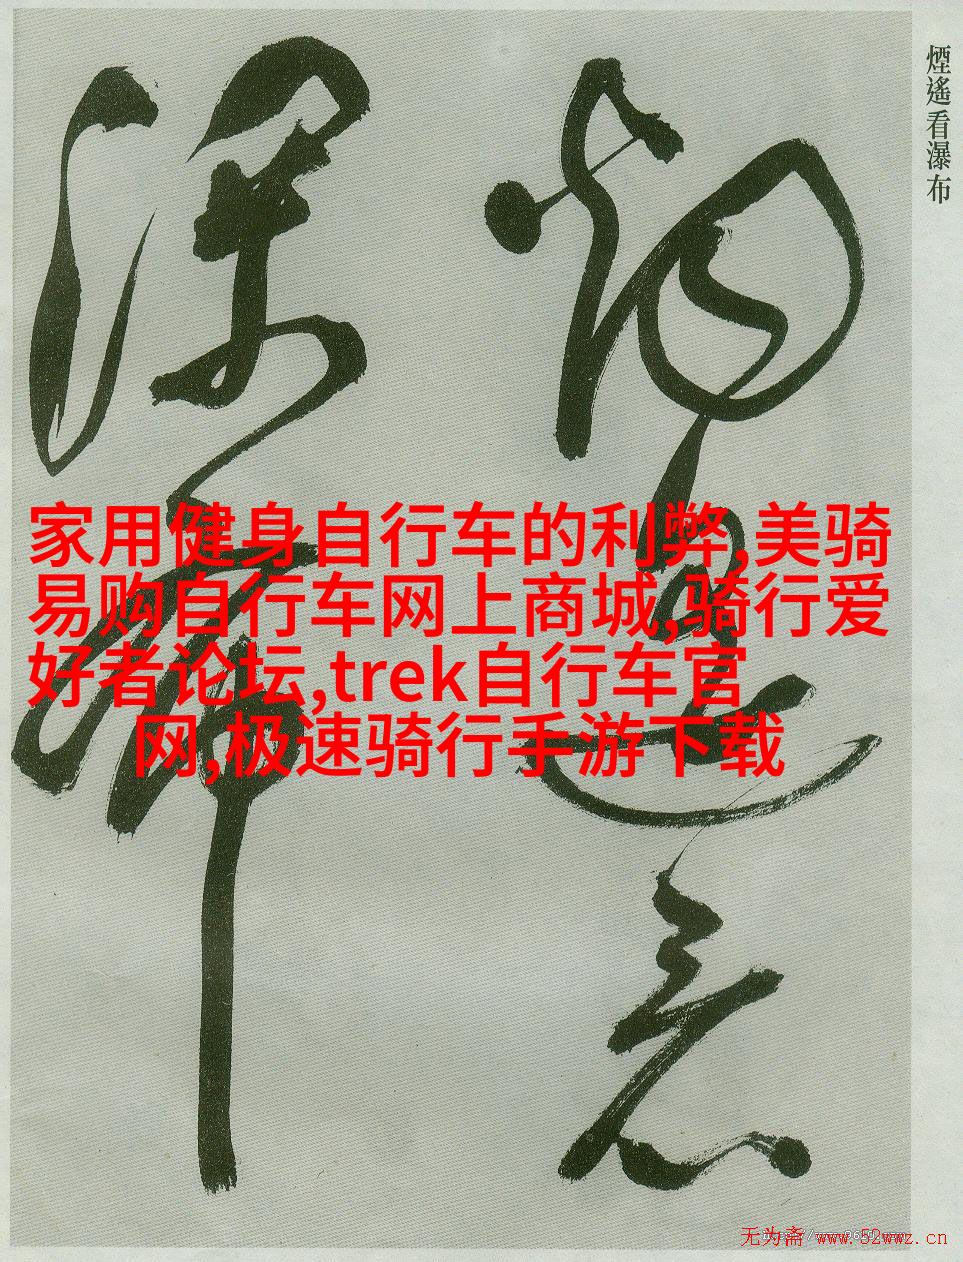 煙遙看瀑布
家用健身自行车的利弊,美骑
易购自行车网上商城,骑行爱
好者论坛,trek自行车官
网,极速骑行手游下载
无为斋 www.52wwz.cn